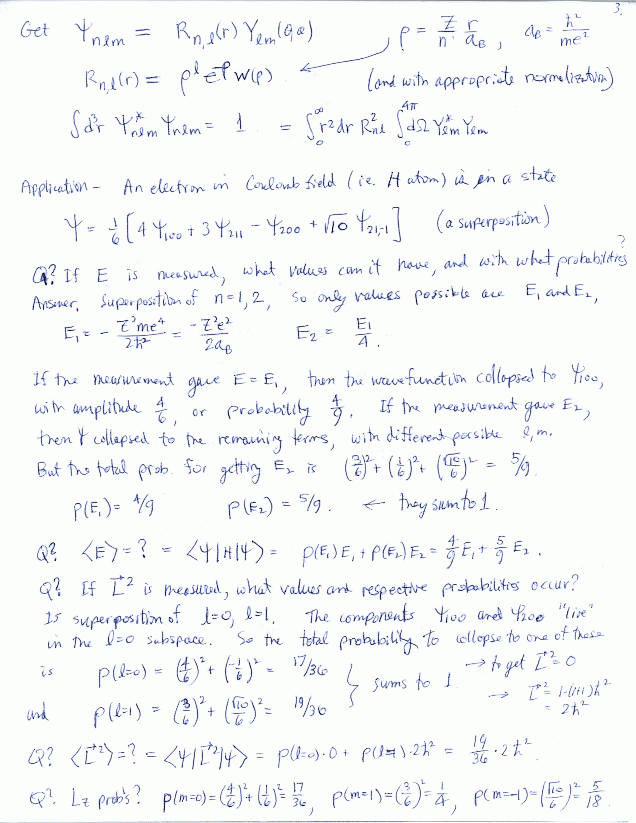 3.
Get Ψnlm = Rn,l(r) Ylm(θ,φ)    ρ = Z/n r/aB , aB = ħ²/me²
Rn,l(r) = ρ^l e^-ρ W(ρ)    (and with appropriate normalization)
∫d³r Ψ*nlm Ψnlm = 1 = ∫₀^∞ r²dr R²nl ∫₀^4π dΩ Y*lm Ylm
Application - An electron in Coulomb field (ie. H atom) is in a state
Ψ = 1/6 [4 Ψ100 + 3 Ψ211 - Ψ200 + √10 Ψ21,-1]    (a superposition)
Q? If E is measured, what values can it have, and with what probabilities?
Answer, Superposition of n=1,2, so only values possible are E1 and E2,
E1 = - Z²me⁴/2ħ² = -Z²e²/2aB    E2 = E1/4.
If the measurement gave E = E1, then the wavefunction collapsed to Ψ100,
with amplitude 4/6, or probability 4/9. If the measurement gave E2,
then Ψ collapsed to the remaining terms, with different possible l,m.
But the total prob. for getting E2 is (3/6)² + (1/6)² + (√10/6)² = 5/9.
P(E1) = 4/9    P(E2) = 5/9. ← they sum to 1.
Q? <E> = ? = <Ψ|H|Ψ> = P(E1)E1 + P(E2)E2 = 4/9 E1 + 5/9 E2.
Q? If L⃗² is measured, what values and respective probabilities occur?
Is superposition of l=0, l=1. The components Ψ100 and Ψ200 "live"
in the l=0 subspace. So the total probability to collapse to one of these
is p(l=0) = (4/6)² + (-1/6)² = 17/36    → to get L⃗² = 0
} sums to 1    → L⃗² = 1·(1+1)ħ² = 2ħ²
and p(l=1) = (3/6)² + (√10/6)² = 19/36
Q? <L⃗²> = ? = <Ψ|L⃗²|Ψ> = p(l=0)·0 + p(l=1)·2ħ² = 19/36 · 2ħ².
Q? Lz prob's? p(m=0) = (4/6)² + (1/6)² = 17/36, p(m=1) = (3/6)² = 1/4, p(m=-1) = (√10/6)² = 5/18.